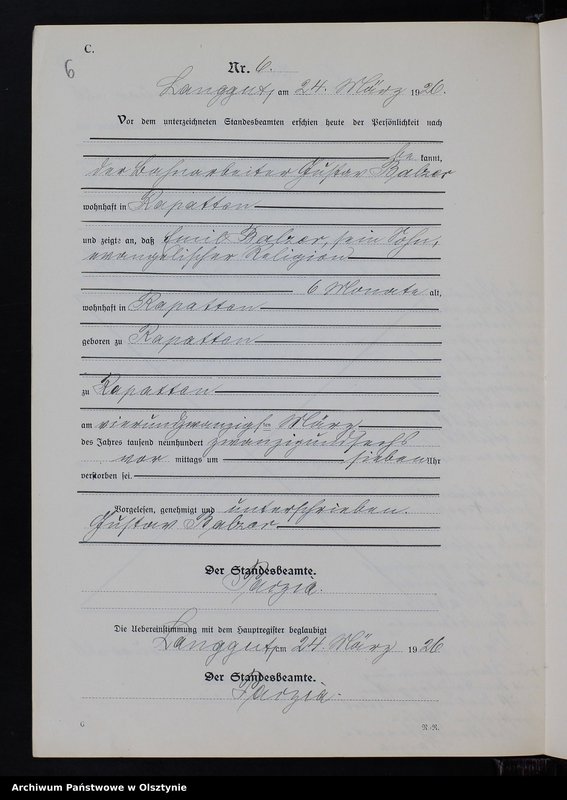 C.
6
Nr. 6.
Langgut, am 24. März 1926.
Vor dem unterzeichneten Standesbeamten erschien heute der Persönlichkeit nach
be kannt,
der Bahnarbeiter Gustav Balzer
wohnhaft in Rapatten
und zeigte an, daß Emil Balzer, sein Sohn,
evangelischer Religion
6 Monate alt,
wohnhaft in Rapatten
geboren zu Rapatten
zu Rapatten
am vierundzwanzigsten März
des Jahres tausend neunhundert zwanzigundsechs
vor mittags um sieben Uhr
verstorben sei.
Vorgelesen, genehmigt und unterschrieben.
Gustav Balzer
Der Standesbeamte.
Die Uebereinstimmung mit dem Hauptregister beglaubigt
Langgut, am 24. März 1926
Der Standesbeamte.
6
Archiwum Państwowe w Olsztynie